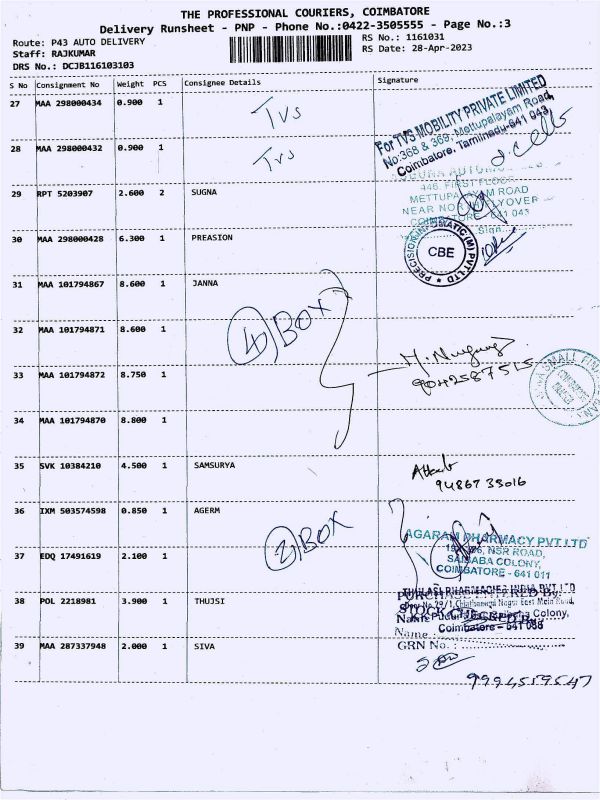 THE PROFESSIONAL COURIERS, COIMBATORE
Delivery Runsheet - PNP - Phone No.:0422-3505555 - Page No.:3
Route: P43 AUTO DELIVERY
RS No.: 1161031
Staff: RAJKUMAR
RS Date: 28-Apr-2023
DRS No.: DCJB116103103
S No Consignment No Weight PCS Consignee Details Signature
27 MAA 298000434 0.900 1 TVS
For TVS MOBILITY PRIVATE LIMITED
No:368 & 369, Mettupalayam Road,
Coimbatore, Tamilnadu-641 043
28 MAA 298000432 0.900 1 TVS
29 RPT 5203907 2.600 2 SUGNA
446, FIRST FLOOR
METTUPALAYAM ROAD
COIMBATORE - 641 043
30 MAA 298000428 6.300 1 PREASION
CBE
31 MAA 101794867 8.600 1 JANNA
4 BOX
32 MAA 101794871 8.600 1
33 MAA 101794872 8.750 1
9042587515
34 MAA 101794870 8.800 1
35 SVK 10384210 4.500 1 SAMSURYA
9486735016
36 IXM 503574598 0.850 1 AGERM
2 BOX
AGARAM PHARMACY PVT LTD
NSR ROAD,
SAIBABA COLONY,
COIMBATORE - 641 011
37 EDQ 17491619 2.100 1
38 POL 2218981 3.900 1 THUJSI
Coimbatore - 641 038
Name :
39 MAA 287337948 2.000 1 SIVA
GRN No. :
9994519547